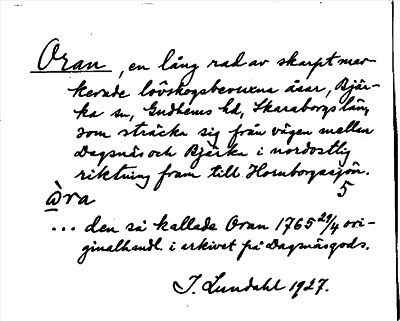 Oran, en lång rad av skarpt mar-
kerade lövskogsbevuxna åsar, Bjär-
ka sn, Gudhems hd, Skaraborgs län,
som sträcka sig från vägen mellan
Dagsnäs och Bjärka i nordostlig
riktning fram till Hornborgasjön.
5
òra
... den så kallade Oran 1765 29/4 ori-
ginalhandl. i arkivet på Dagsnäs gods.
J. Lundahl 1927.